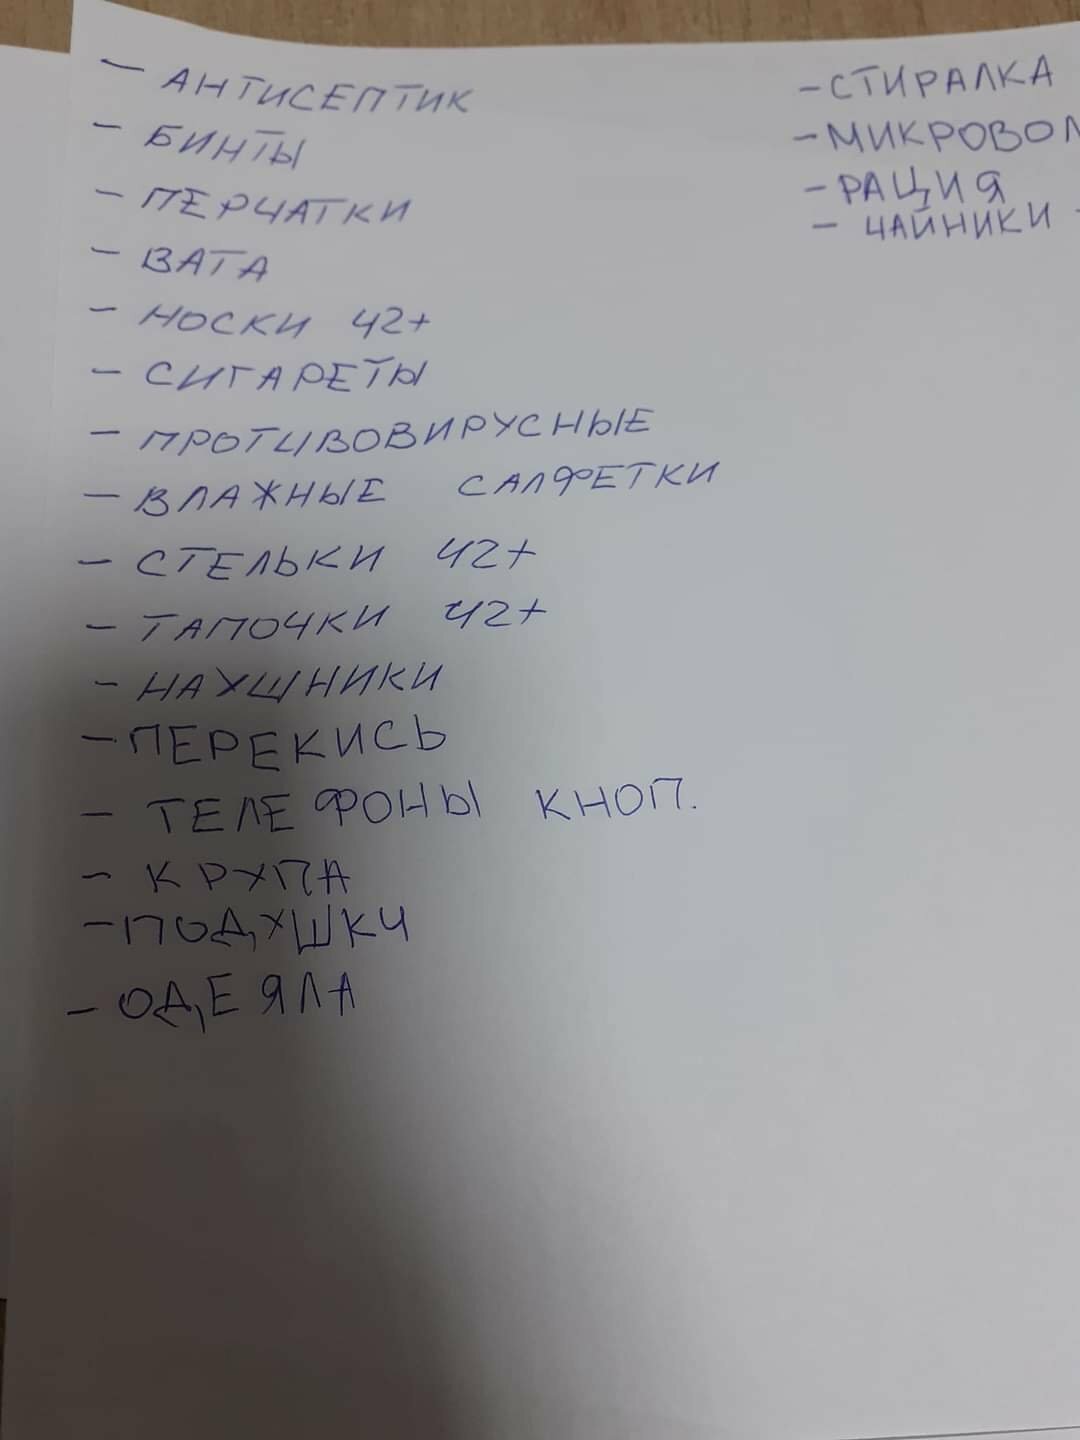 - АНТИСЕПТИК
- БИНТЫ
- ПЕРЧАТКИ
- ВАТА
- НОСКИ 42+
- СИГАРЕТЫ
- ПРОТИВОВИРУСНЫЕ
- ВЛАЖНЫЕ САЛФЕТКИ
- СТЕЛЬКИ 42+
- ТАПОЧКИ 42+
- НАУШНИКИ
- ПЕРЕКИСЬ
- ТЕЛЕФОНЫ КНОП.
- КРУПА
- ПОДУШКИ
- ОДЕЯЛА
- СТИРАЛКА
- РАЦИЯ
- ЧАЙНИКИ